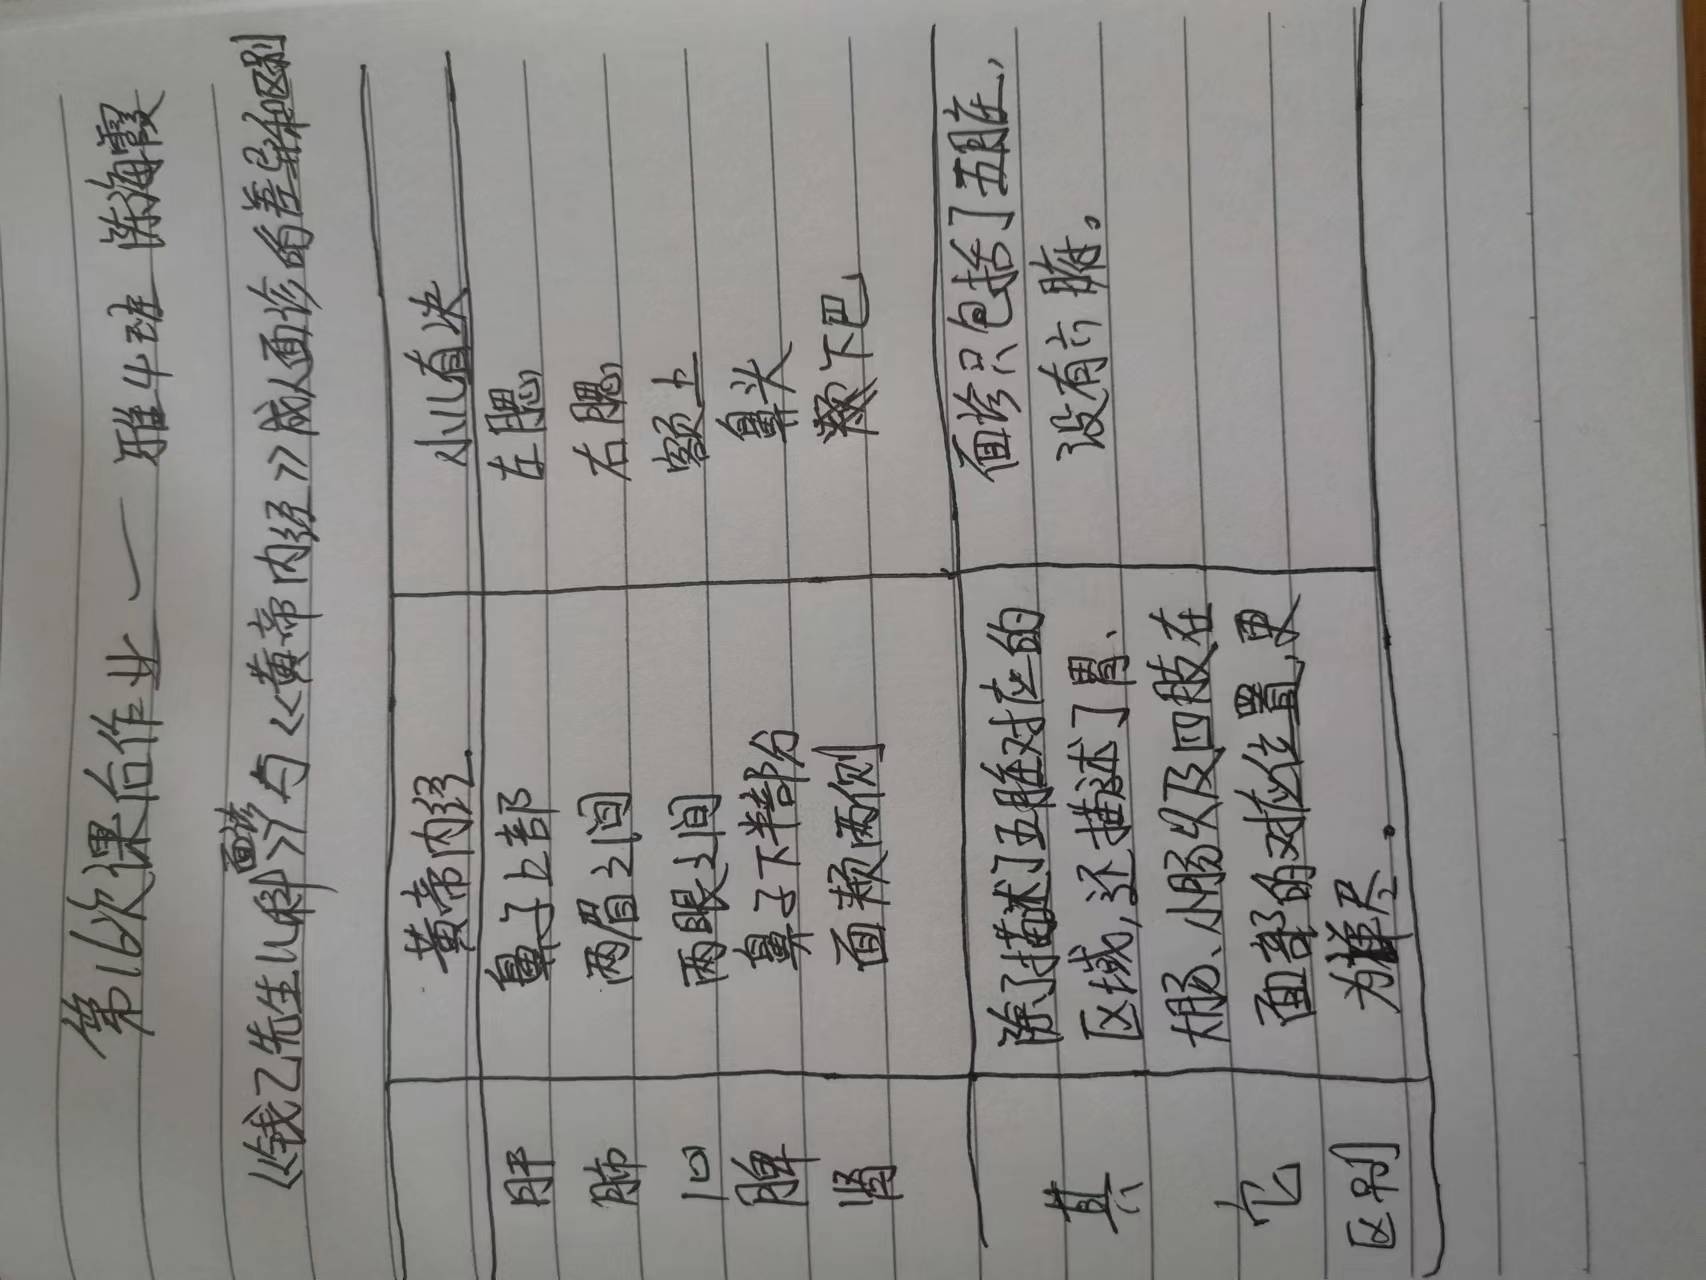 第16次课后作业一 雅4班 陈海霞
面诊
《钱乙先生儿科》与《黄帝内经》成人面诊的差异和区别
黄帝内经 小儿直诀
肝 鼻子上部 左腮
肺 两眉之间 右腮
心 两眼之间 额上
脾 鼻子下半部分 鼻头
肾 面颊两侧 下巴
其它区别
除了描述了五脏对应的
区域,还描述了胃、
大肠、小肠以及四肢在
面部的对应位置,更
为详尽.
面诊只包括了五脏,
没有六腑。